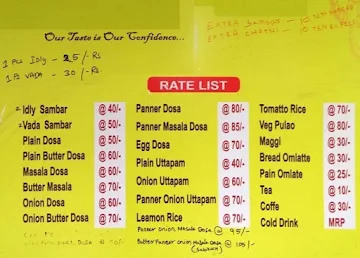 Our Taste is Our Confidence...
EXTRA Sambar - 10 TEN RUPEES
EXTRA CHATNI - 10 TEN RUPEES
1 Pcs Idly - 25/- Rs
1 Ps VADA - 30/- Rs.
RATE LIST
Idly Sambar @ 40/-
Vada Sambar @ 50/-
Plain Dosa @ 50/-
Plain Butter Dosa @ 60/-
Masala Dosa @ 60/-
Butter Masala @ 70/-
Onion Dosa @ 60/-
Onion Butter Dosa @ 70/-
Panner Dosa @ 80/-
Panner Masala Dosa @ 85/-
Egg Dosa @ 70/-
Plain Uttapam @ 40/-
Onion Uttapam @ 60/-
Panner Onion Uttapam @ 70/-
Leamon Rice @ 70/-
Panner Onion Masala Dosa @ 95/-
Butter Panner Onion Masala Dosa @ 105/-
Tomatto Rice @ 70/-
Veg Pulao @ 80/-
Maggi @ 30/-
Bread Omlatte @ 30/-
Pain Omlate @ 25/-
Tea @ 10/-
Coffe @ 30/-
Cold Drink MRP